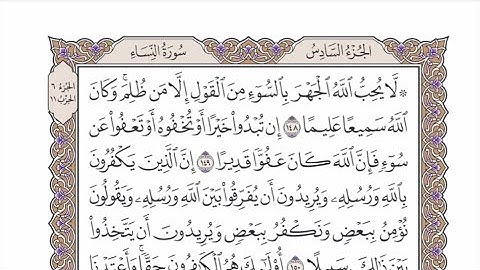 الجزء السادس
سورة النساء
الجزء ٦
الحزب ١١
۞ لَّا يُحِبُّ اللَّهُ الْجَهْرَ بِالسُّوٓءِ مِنَ الْقَوْلِ إِلَّا مَن ظُلِمَ ۚ وَكَانَ
اللَّهُ سَمِيعًا عَلِيمًا ١٤٨ إِن تُبْدُوا۟ خَيْرًا أَوْ تُخْفُوهُ أَوْ تَعْفُوا۟ عَن
سُوٓءٍ فَإِنَّ اللَّهَ كَانَ عَفُوًّا قَدِيرًا ١٤٩ إِنَّ الَّذِينَ يَكْفُرُونَ
بِاللَّهِ وَرُسُلِهِۦ وَيُرِيدُونَ أَن يُفَرِّقُوا۟ بَيْنَ اللَّهِ وَرُسُلِهِۦ وَيَقُولُونَ
نُؤْمِنُ بِبَعْضٍ وَنَكْفُرُ بِبَعْضٍ وَيُرِيدُونَ أَن يَتَّخِذُوا۟
بَيْنَ ذَٰلِكَ سَبِيلًا ١٥٠ أُو۟لَٰٓئِكَ هُمُ الْكَٰفِرُونَ حَقًّا ۚ وَأَعْتَدْنَا